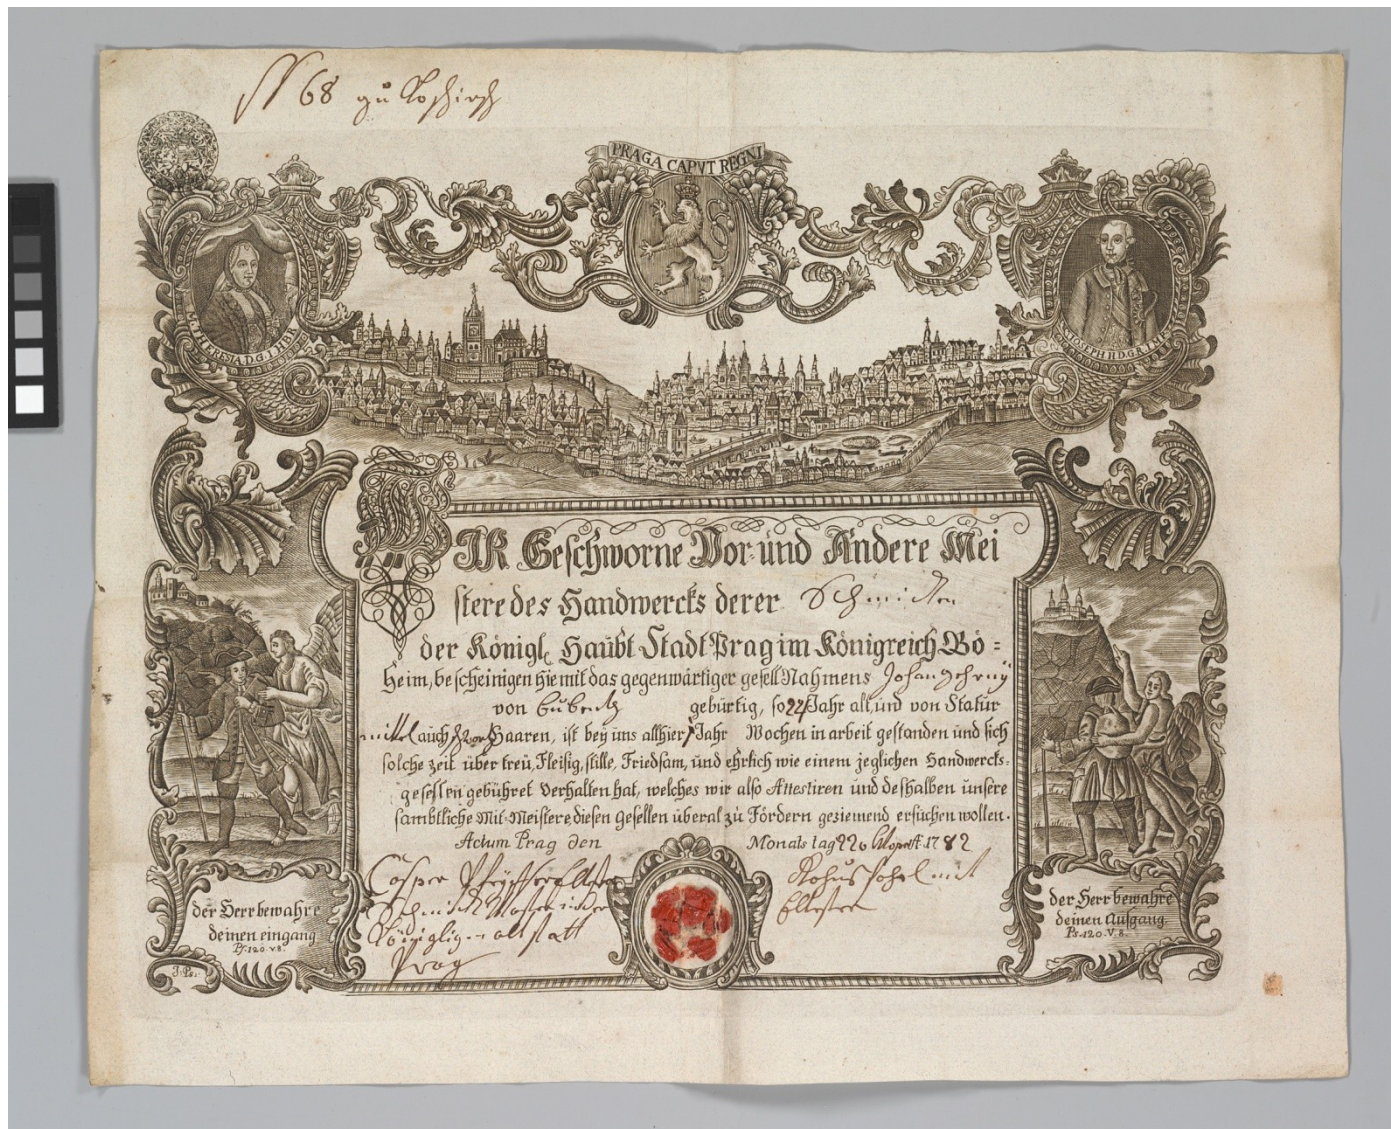 N 68 zu
PRAGA CAPVT REGNI
M. THERESIA. D. G. I. J. HBR
JOSEPH II D. G. R. I. M. F.
WJR Geschworne Vor: und Andere Mei
stere des Handwercks derer Schmidten
der Königl Haubt Stadt Prag im Königreich Bö=
heim, bescheinigen hiemit das gegenwärtiger gesell Nahmens Johan
von Bubentz gebürtig, so 24 Jahr alt, und von Statur
mittel auch Haaren, ist beÿ uns allhier 1 Jahr Wochen in arbeit gestanden und sich
solche zeit über treü, Fleisig, stille, Friedsam, und ehrlich wie einem jeglichen Handwercks=
gesellen gebühret Verhalten hat, welches wir also Attestiren und deshalben unsere
sambtliche Mit-Meistere, diesen gesellen überal zu Fördern geziemend ersuchen wollen.
Actum Prag den Monats tag 22 1782
Casper Eltester
Schmidt Master in der
Königligen altstatt
Prag
Rohus
Eltester
der Herr bewahre
deinen eingang
Ps. 120. v. 8.
J: Ps:
der Herr bewahre
deinen Ausgang
Ps. 120. V. 8.